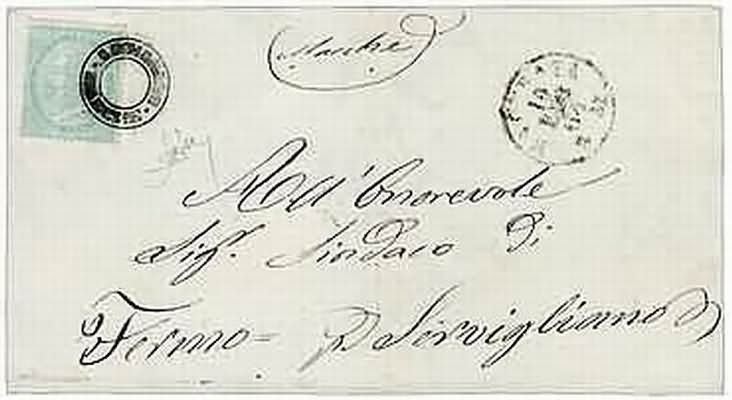 Marche
All' Onorevole
Sigr. Sindaco di
Fermo = p Servigliano